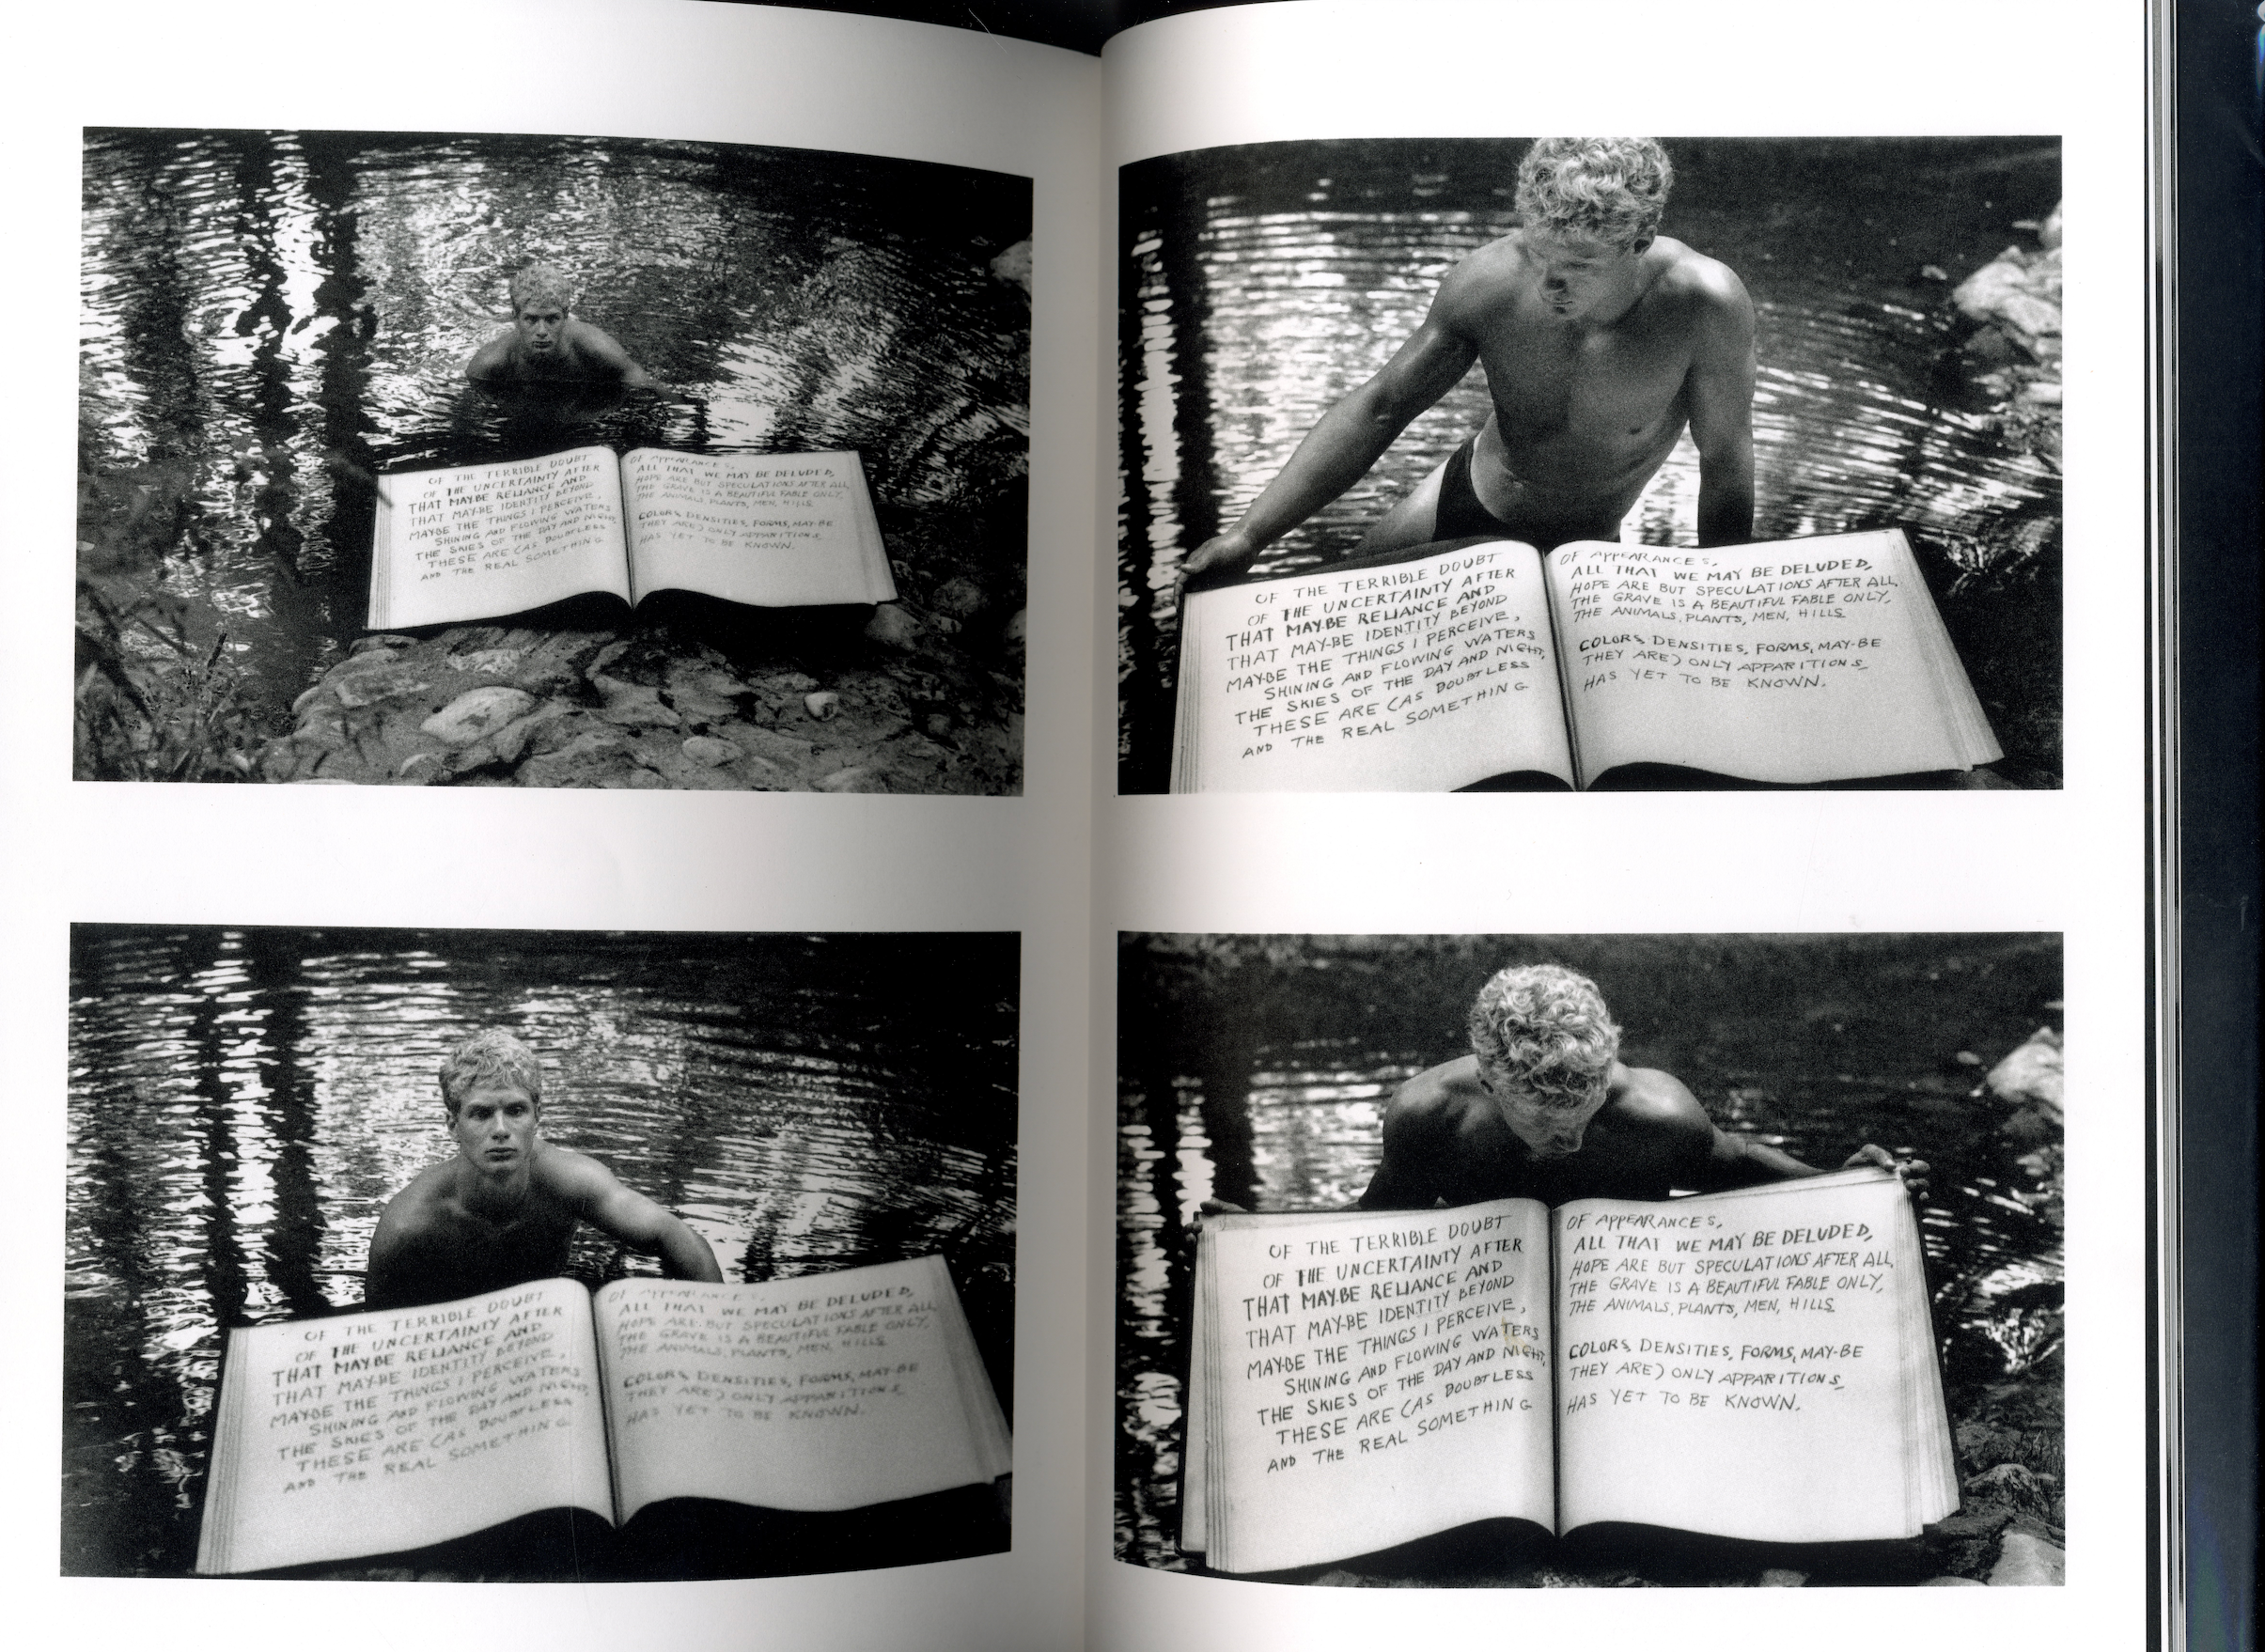 OF THE TERRIBLE DOUBT
OF THE UNCERTAINTY AFTER
THAT MAY-BE RELIANCE AND
THAT MAY-BE IDENTITY BEYOND
MAYBE THE THINGS I PERCEIVE,
SHINING AND FLOWING WATERS
THE SKIES OF THE DAY AND NIGHT,
THESE ARE (AS DOUBTLESS
AND THE REAL SOMETHING
OF APPEARANCES,
ALL THAT WE MAY BE DELUDED,
HOPE ARE BUT SPECULATIONS AFTER ALL,
THE GRAVE IS A BEAUTIFUL FABLE ONLY,
THE ANIMALS, PLANTS, MEN, HILLS
COLORS, DENSITIES, FORMS, MAY-BE
THEY ARE) ONLY APPARITIONS,
HAS YET TO BE KNOWN.
OF THE TERRIBLE DOUBT
OF THE UNCERTAINTY AFTER
THAT MAY-BE RELIANCE AND
THAT MAY-BE IDENTITY BEYOND
MAYBE THE THINGS I PERCEIVE,
SHINING AND FLOWING WATERS
THE SKIES OF THE DAY AND NIGHT,
THESE ARE (AS DOUBTLESS
AND THE REAL SOMETHING
OF APPEARANCES,
ALL THAT WE MAY BE DELUDED,
HOPE ARE BUT SPECULATIONS AFTER ALL,
THE GRAVE IS A BEAUTIFUL FABLE ONLY,
THE ANIMALS, PLANTS, MEN, HILLS
COLORS, DENSITIES, FORMS, MAY-BE
THEY ARE) ONLY APPARITIONS,
HAS YET TO BE KNOWN.
OF THE TERRIBLE DOUBT
OF THE UNCERTAINTY AFTER
THAT MAY-BE RELIANCE AND
THAT MAY-BE IDENTITY BEYOND
MAYBE THE THINGS I PERCEIVE,
SHINING AND FLOWING WATERS
THE SKIES OF THE DAY AND NIGHT,
THESE ARE (AS DOUBTLESS
AND THE REAL SOMETHING
OF APPEARANCES,
ALL THAT WE MAY BE DELUDED,
HOPE ARE BUT SPECULATIONS AFTER ALL,
THE GRAVE IS A BEAUTIFUL FABLE ONLY,
THE ANIMALS, PLANTS, MEN, HILLS
COLORS, DENSITIES, FORMS, MAY-BE
THEY ARE) ONLY APPARITIONS,
HAS YET TO BE KNOWN.
OF THE TERRIBLE DOUBT
OF THE UNCERTAINTY AFTER
THAT MAY-BE RELIANCE AND
THAT MAY-BE IDENTITY BEYOND
MAYBE THE THINGS I PERCEIVE,
SHINING AND FLOWING WATERS
THE SKIES OF THE DAY AND NIGHT,
THESE ARE (AS DOUBTLESS
AND THE REAL SOMETHING
OF APPEARANCES,
ALL THAT WE MAY BE DELUDED,
HOPE ARE BUT SPECULATIONS AFTER ALL,
THE GRAVE IS A BEAUTIFUL FABLE ONLY,
THE ANIMALS, PLANTS, MEN, HILLS
COLORS, DENSITIES, FORMS, MAY-BE
THEY ARE) ONLY APPARITIONS,
HAS YET TO BE KNOWN.